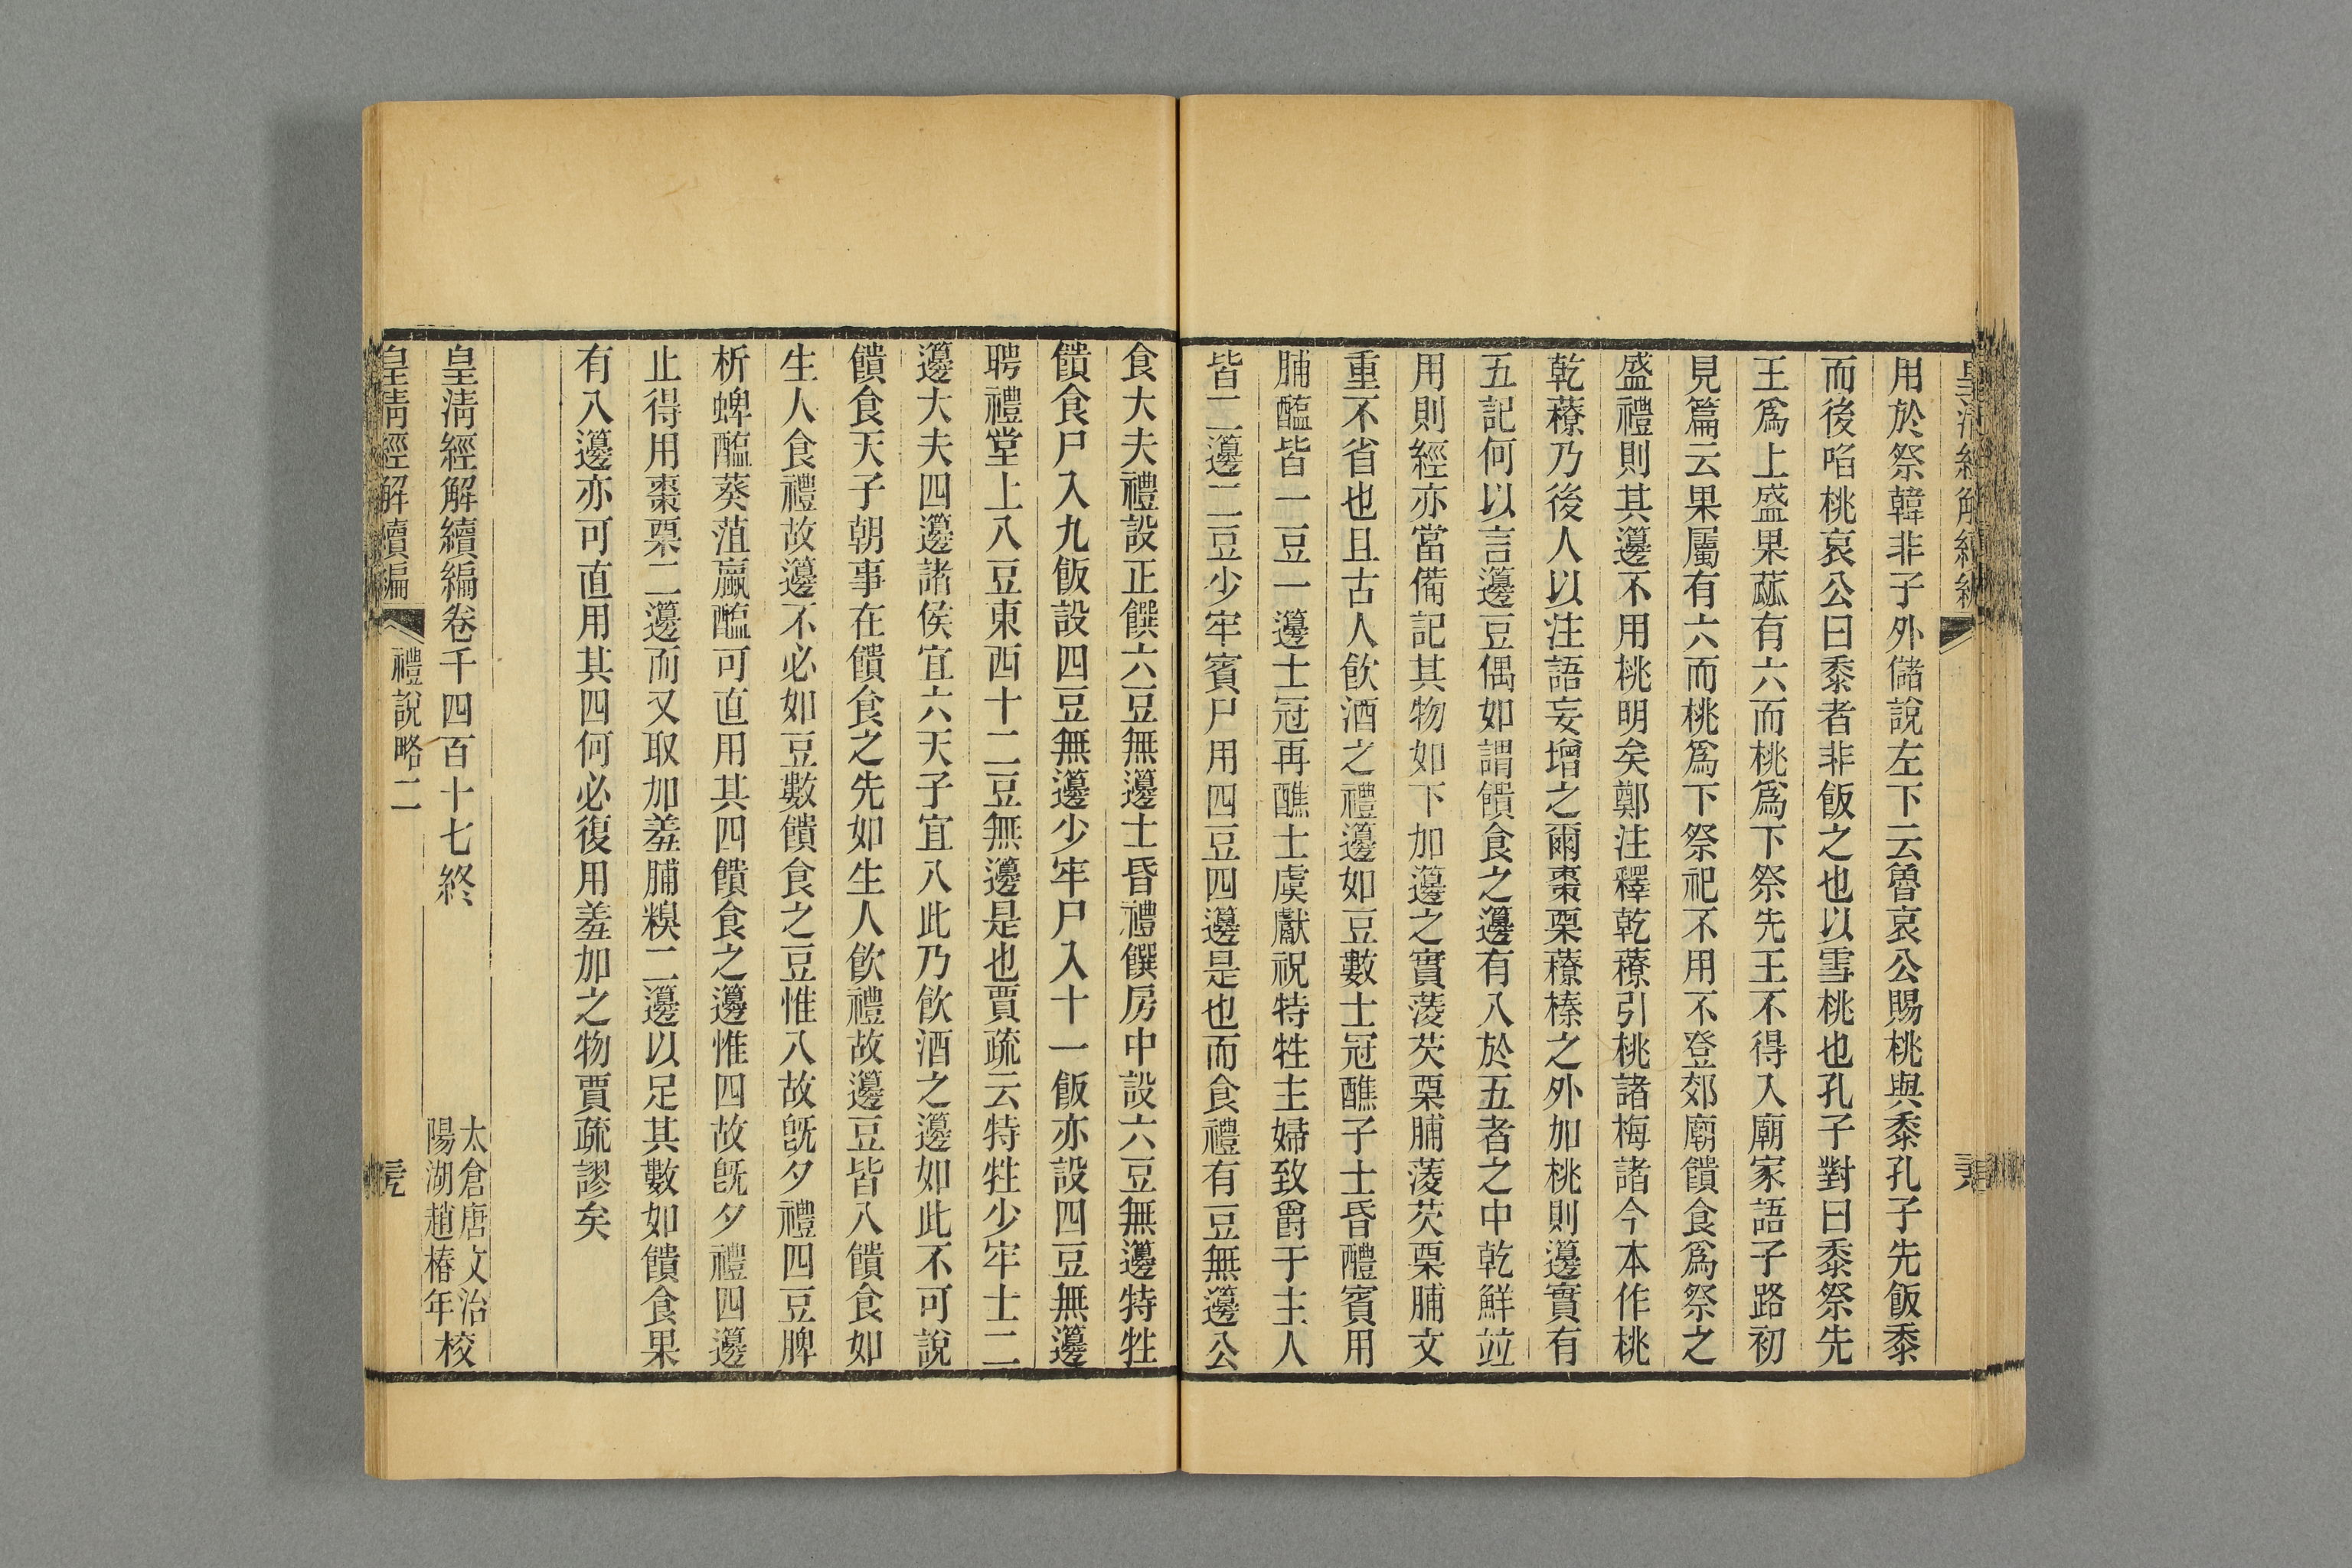 用於祭韓非子外儲說左下云魯哀公賜桃與黍孔子先飯黍
而後啗桃哀公曰黍者非飯之也以雪桃也孔子對曰黍祭先
王爲上盛果蓏有六而桃爲下祭先王不得入廟家語子路初
見篇云果屬有六而桃爲下祭祀不用不登郊廟饋食爲祭之
盛禮則其籩不用桃明矣鄭注釋乾䕩引桃諸梅諸今本作桃
乾䕩乃後人以注語妄增之爾棗㮚䕩榛之外加桃則籩實有
五記何以言籩豆偶如謂饋食之籩有八於五者之中乾鮮竝
用則經亦當備記其物如下加籩之實蔆芡㮚脯蔆芡㮚脯文
重不省也且古人飮酒之禮籩如豆數士冠醮子士昏醴賓用
脯醢皆一豆一籩士冠再醮士虞獻祝特牲主婦致爵于主人
皆二籩二豆少牢賓尸用四豆四籩是也而食禮有豆無籩公
食大夫禮設正饌六豆無籩士昏禮饌房中設六豆無籩特牲
饋食尸入九飯設四豆無籩少牢尸入十一飯亦設四豆無籩
聘禮堂上八豆東西十二豆無籩是也賈疏云特牲少牢士二
籩大夫四籩諸侯宜六天子宜八此乃飮酒之籩如此不可說
饋食天子朝事在饋食之先如生人飮禮故籩豆皆八饋食如
生人食禮故籩不必如豆數饋食之豆惟八故旣夕禮四豆脾
析蜱醢葵菹蠃醢可直用其四饋食之籩惟四故旣夕禮四籩
止得用棗㮚二籩而又取加羞脯糗二籩以足其數如饋食果
有八籩亦可直用其四何必復用羞加之物賈疏謬矣
皇淸經解續編卷千四百十七終
太倉唐文治
陽湖趙椿年校
皇淸經解續編
禮說略二